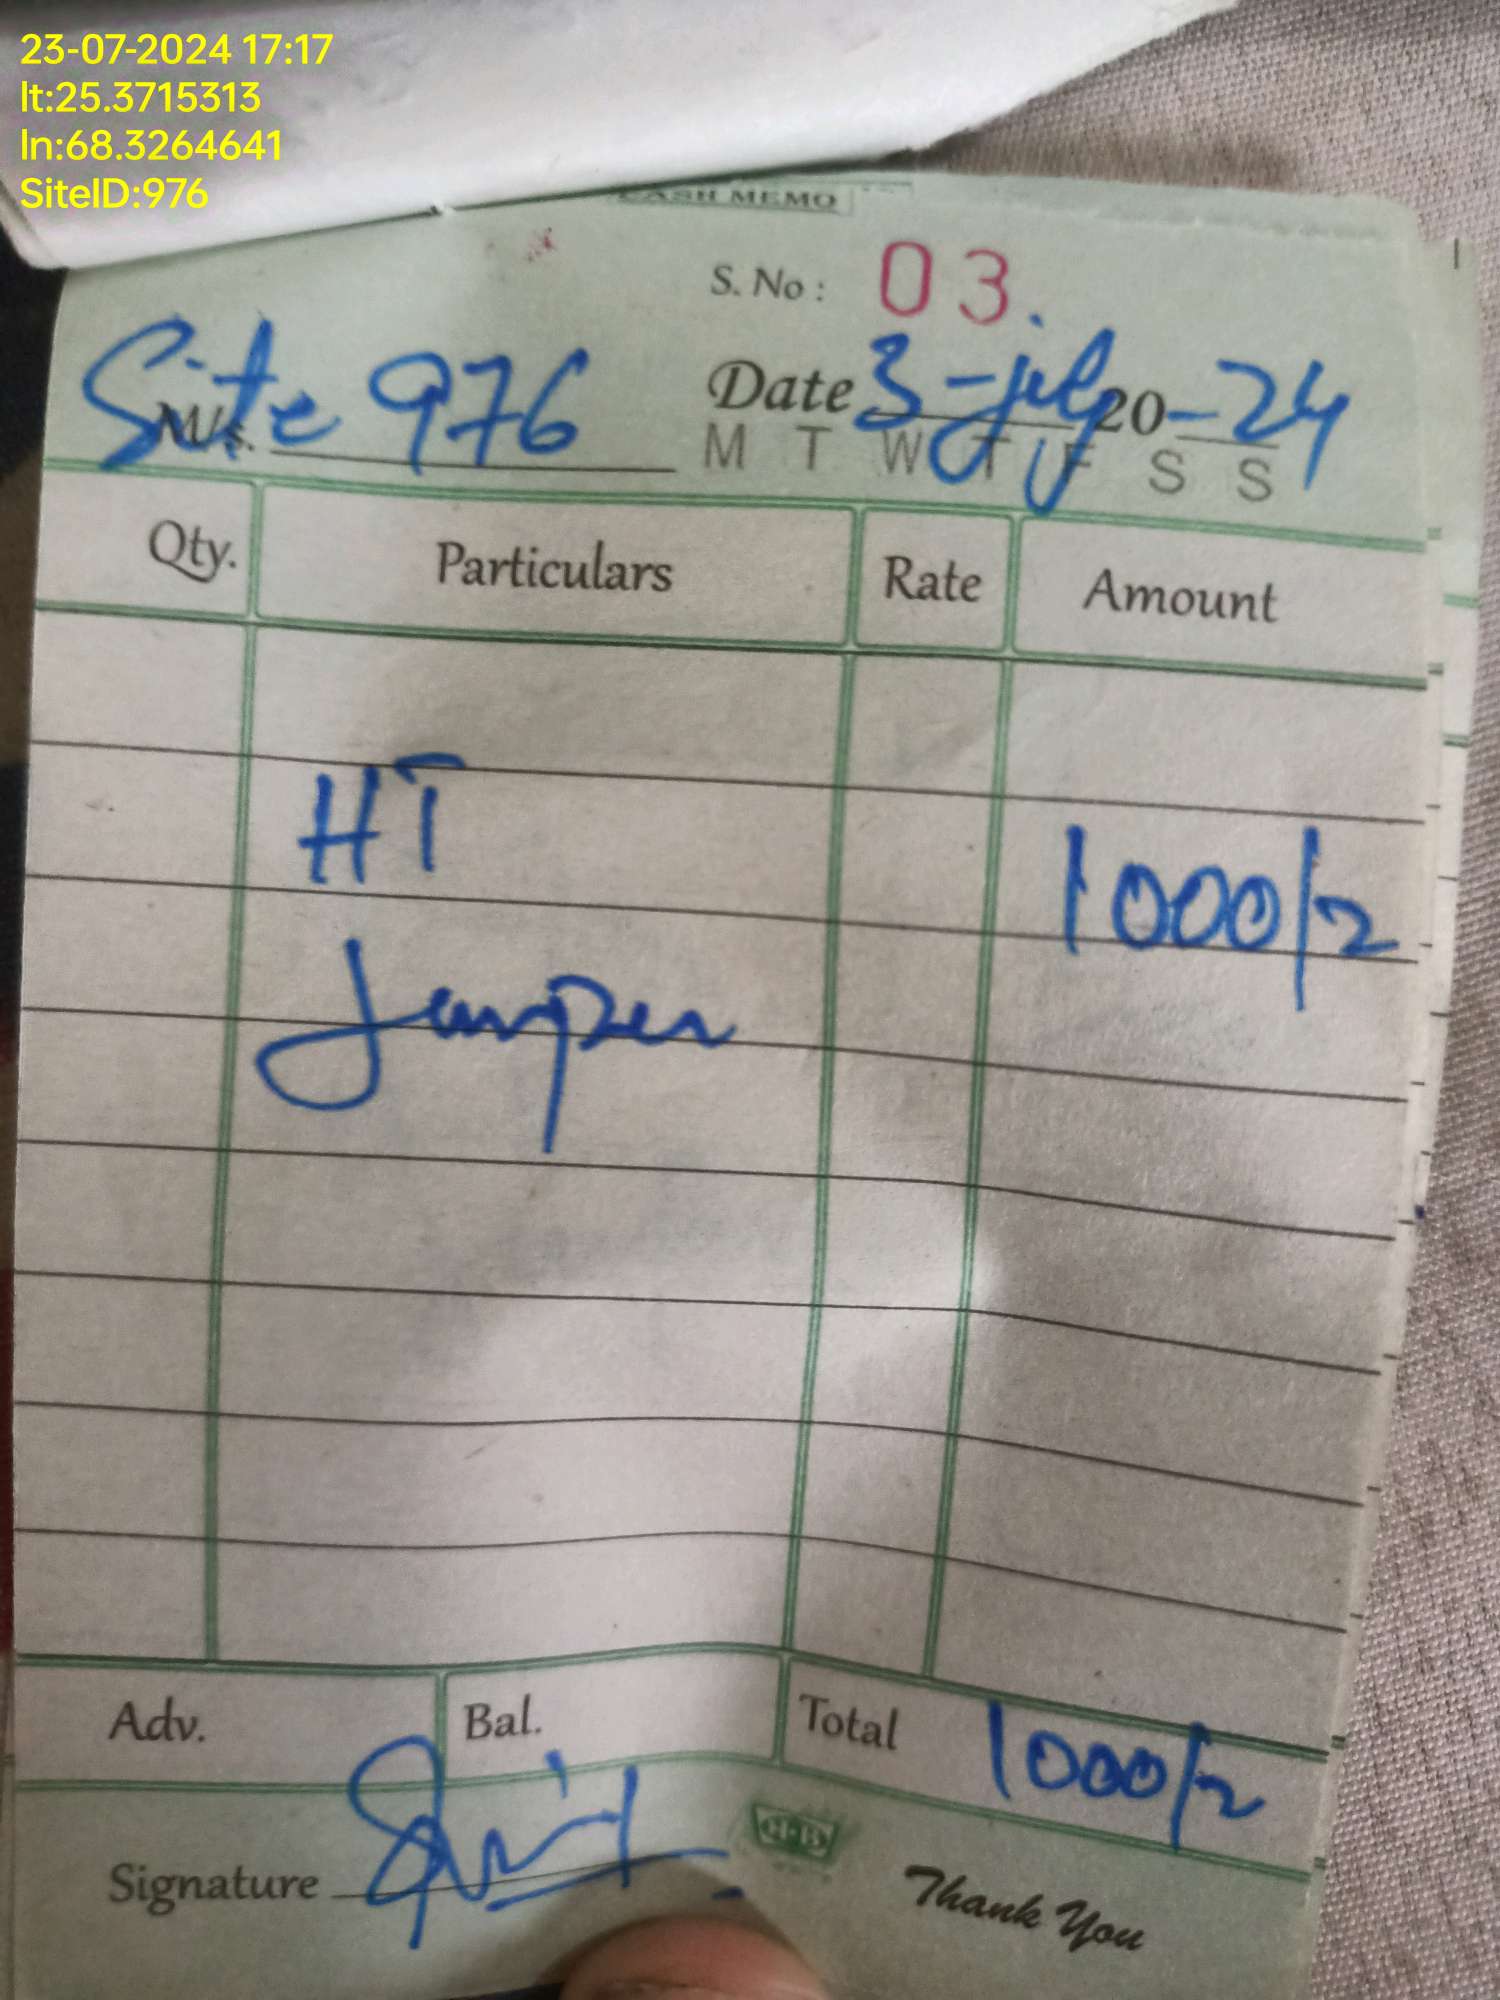 23-07-2024 17:17
lt:25.3715313
ln:68.3264641
SiteID:976
CASH MEMO
S. No : 03
M/s. Site 976 Date 3-july 20-24
M T W T F S S
Qty. Particulars Rate Amount
HT
1000/=
Jumper
Adv. Bal. Total 1000/=
Signature
H·B
Thank You